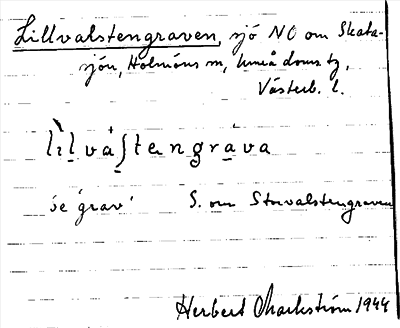 Lillvalstengraven, sjö NO om Skata-
sjön, Holmöns sn, Umeå doms tg,
Västerb. l.
lìlváʃtengràva
se 'grav' S. om Storvalstengraven
Herbert Markström 1944